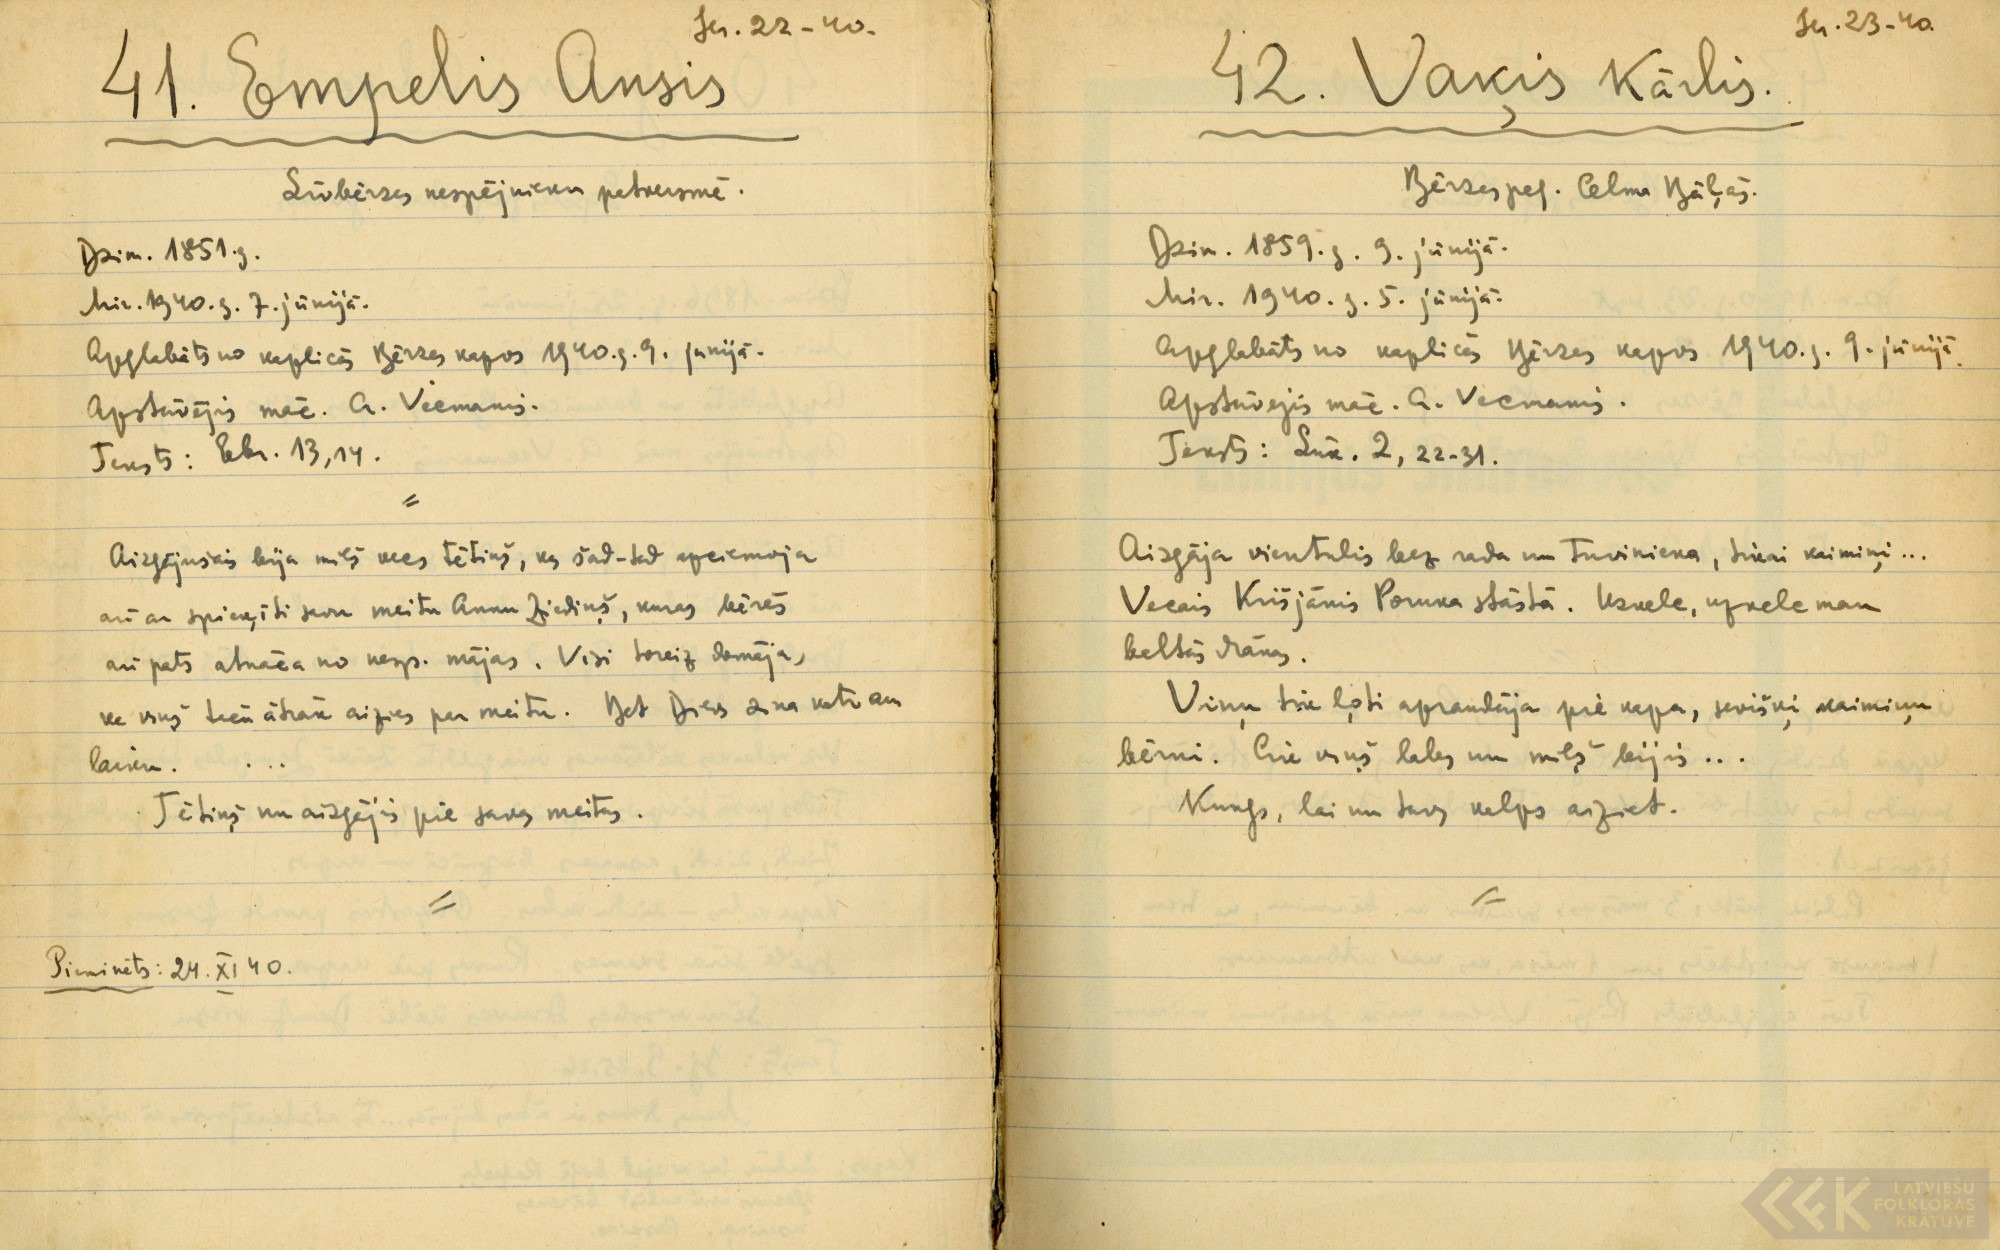 41. Empelis Ansis
22-40.
Līvbērzes nespējnieku patversmē.
Dzim. 1851.g.
Mir. 1940.g. 7. jūnijā.
Apglabāts no kaplicās Bērzes kapos 1940.g. 9. jūnijā.
Apstāvējis māc. A. Vecmanis.
Teksts: Ebr. 13,14.
Aizgājušais bija mīļš vecs tētiņš, kas šad-tad apciemoja
arī ar spieķīti savu meitu Annu Ziediņš, kuras bērēs
arī pats atnāca no nesp. mājas. Visi toreiz domāja,
ka viņš drīz ātrāk aizies par meitu. Bet Dievs zina katram
laiku. ...
Tētiņš nu aizgājis pie savas meitas.
Pieminēts: 24. XI 40.
23-40.
42. Vaķis Kārlis.
Bērzes pag. Celma Bāļās.
Dzim. 1859.g. 9. jūnijā.
Mir. 1940.g. 5. jūnijā.
Apglabāts no kaplicās Bērzes kapos 1940.g. 9. jūnijā.
Apstāvējis māc. A. Vecmanis.
Teksts: Lūk. 2, 22-31.
Aizgāja vientulis bez rada un tuvinieka, tikai kaimiņi...
Vecais Krišjānis Poruka stāstā. Uzvelc, uzvelc man
baltās drānas.
Viņu tik ļoti apraudāja pie kapa, sevišķi kaimiņu
bērni. Cik viņš labs un mīļš bijis...
Kungs, lai nu tavs kalps aiziet.
LATVIEŠU
FOLKLORAS
KRĀTUVE